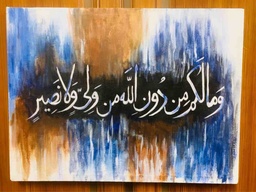 وَمَا لَكُم مِن دُونِ اللّه مِن وَلِيٍّ وَلَا نَصِيرٍ